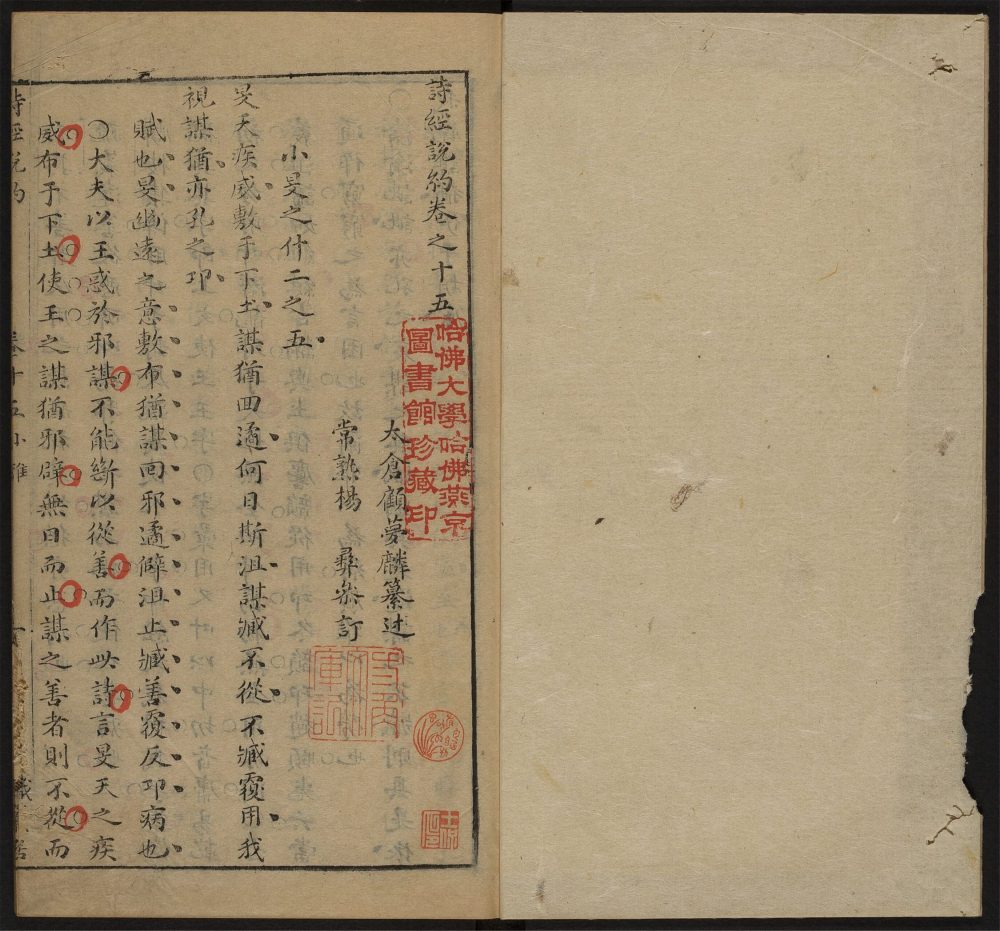 詩經說約卷之十五
太倉顧夢麟纂述
常熟楊彝參訂
小旻之什二之五
旻天疾威敷于下土謀猶回遹何日斯沮謀臧不從不臧覆用我
視謀猶亦孔之邛
賦也旻幽遠之意敷布猶謀回邪遹僻沮止臧善覆反邛病也
○大夫以王惑於邪謀不能斷以從善而作此詩言旻天之疾
威布于下土使王之謀猶邪辟無日而止謀之善者則不從而
詩經說約 卷十五小雅 一
哈佛大學哈佛燕京
圖書館珍藏印